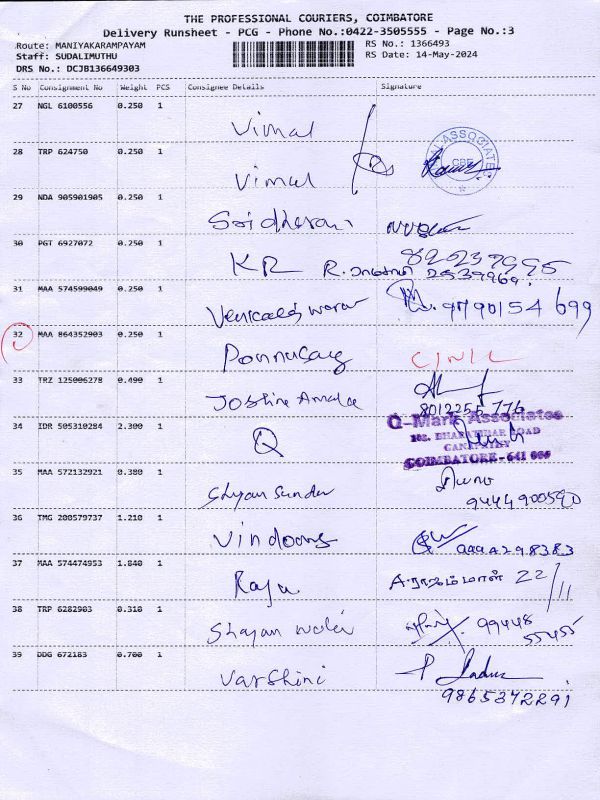 THE PROFESSIONAL COURIERS, COIMBATORE
Delivery Runsheet - PCG - Phone No.:0422-3505555 - Page No.:3
Route: MANIYAKARAMPAYAM RS No.: 1366493
Staff: SUDALIMUTHU RS Date: 14-May-2024
DRS No.: DCJB136649303
S No Consignment No Weight PCS Consignee Details Signature
27 NGL 6100556 0.250 1
Vimal
28 TRP 624750 0.250 1
Vimal
ASSOCIATES CBE
29 NDA 905901905 0.250 1
30 PGT 6927072 0.250 1
KR R.
31 MAA 574599049 0.250 1
9790154 699
32 MAA 864352903 0.250 1
33 TRZ 125006278 0.490 1
8012255 776
34 IDR 505310284 2.300 1
Q
Q-Mark Associates
102, BHARATHIAR ROAD
GANAPATHY
COIMBATORE - 641 006
35 MAA 572132921 0.380 1
Shyam Sunder
36 TMG 200579737 1.210 1
37 MAA 574474953 1.840 1
Raja 22/11
38 TRP 6282903 0.310 1
99448
55455
39 DDG 672183 0.700 1
Varshini
9865372291